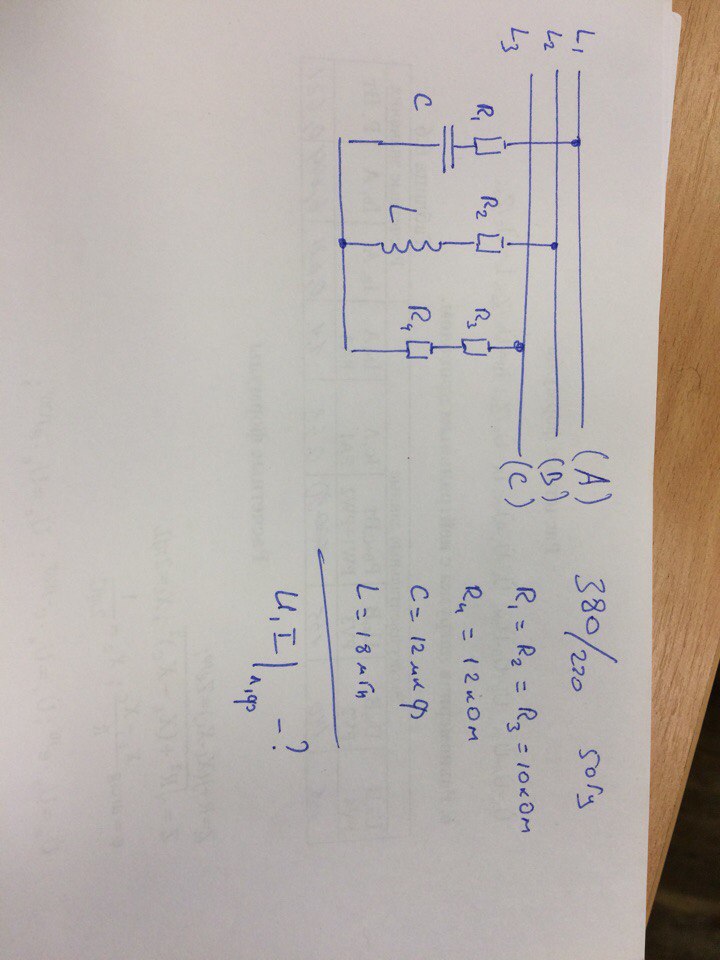 L₁
L₂
L₃
R₁
C
R₂
L
R₃
R₄
(A)
(B)
(C)
380/220 50Гц
R₁ = R₂ = R₃ = 10кОм
R₄ = 12кОм
C = 12мкФ
L = 18мГн
U, I|л,ф - ?